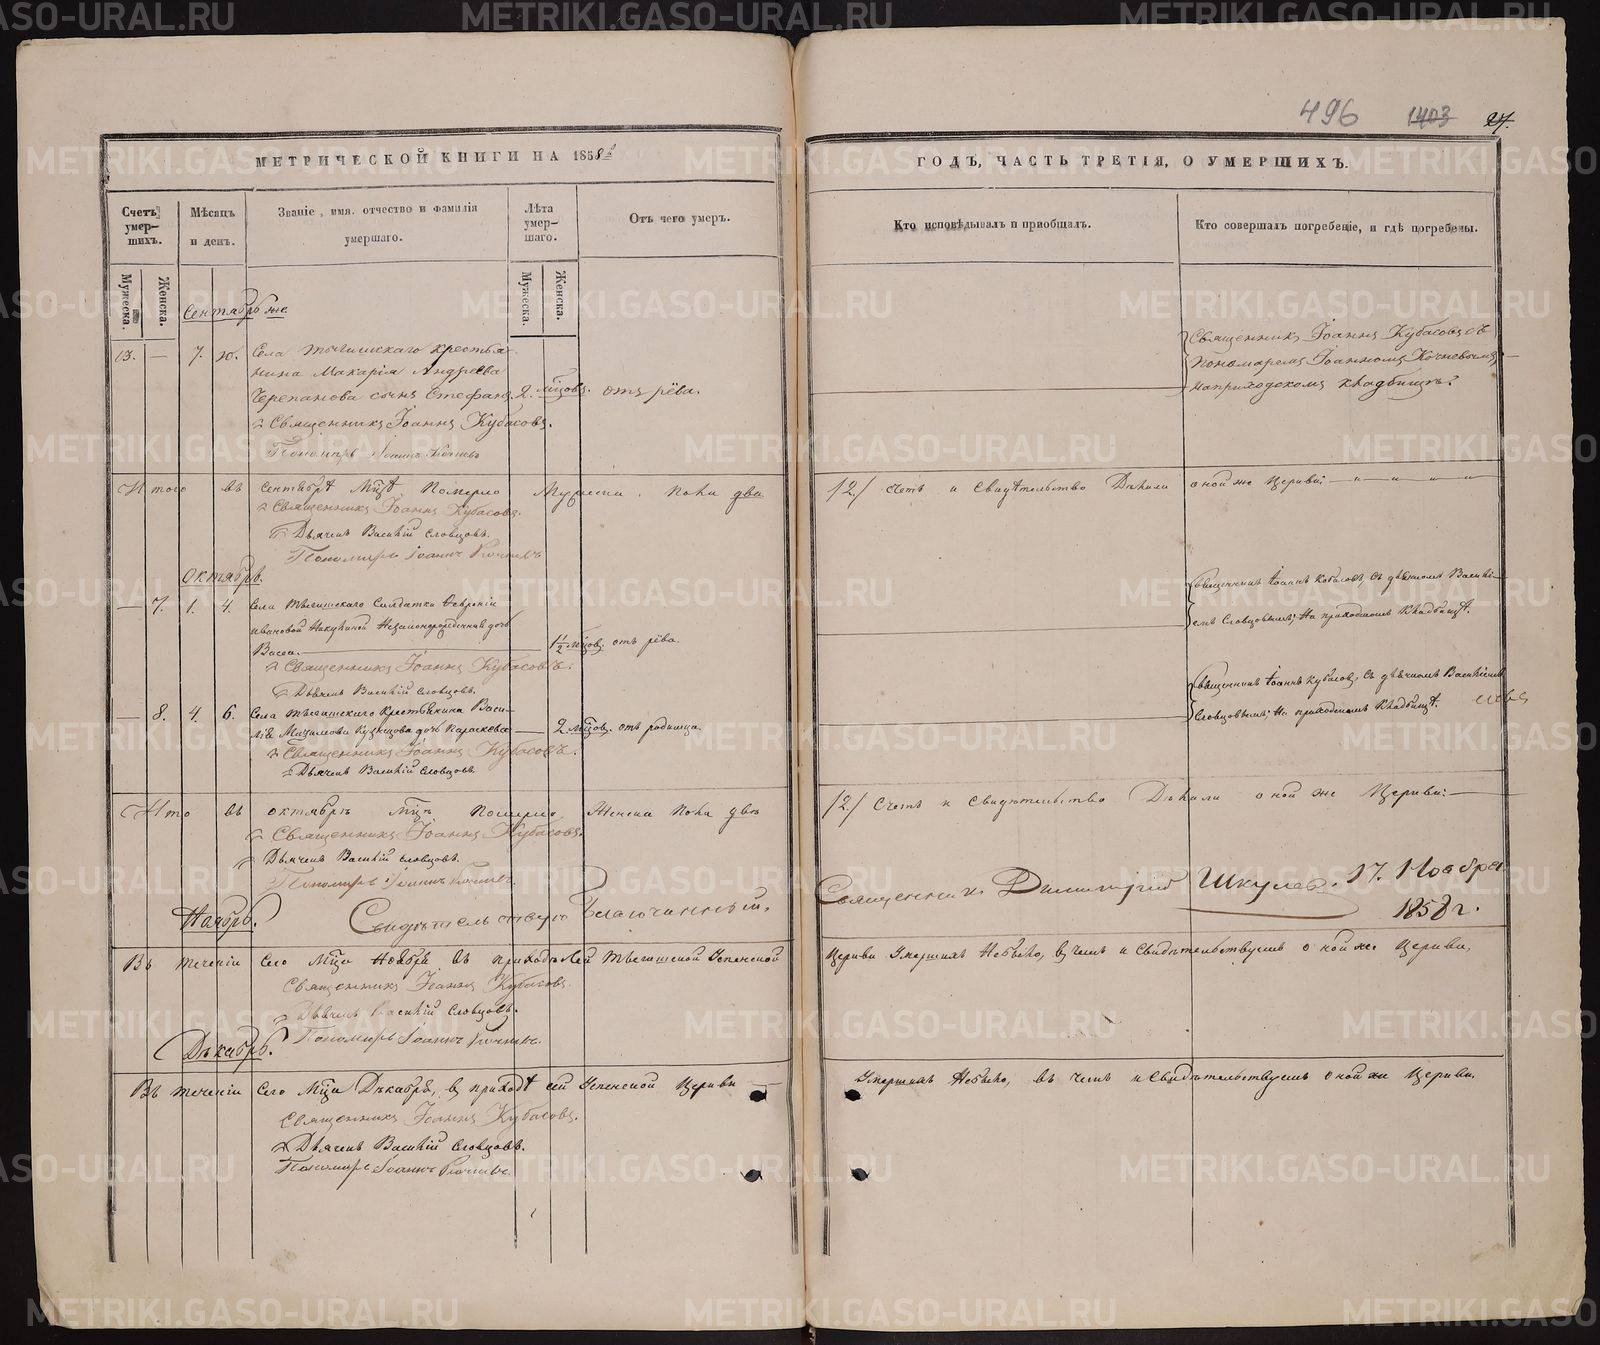 496 1403 27.
МЕТРИЧЕСКОЙ КНИГИ НА 1858й
ГОДЪ, ЧАСТЬ ТРЕТІЯ, О УМЕРШИХЪ.
Счетъ умер-шихъ.
Мѣсяцъ и день.
Званіе, имя, отчество и фамилія умершаго.
Лѣта умер-шаго.
Отъ чего умеръ.
Кто исповѣдывалъ и пріобщалъ.
Кто совершалъ погребеніе, и гдѣ погребены.
Мужеска. Женска.
Мужеска. Женска.
Сентябрь же
13. — 7. 10. Села Тыгишскаго крестья-
нина Макарія Андреева
Черепанова сынъ Стефанъ 2. мѣцовъ. отъ рёва.
Священникъ Іоаннъ Кубасовъ съ
пономаремъ Іоанномъ Кочневымъ,
на приходскомъ кладбищѣ.
Священникъ Іоаннъ Кубасовъ.
Пономарь Іоаннъ Кочневъ
Итого въ Сентябрѣ мцѣ померло мужеска пола два
/2/ счетъ и свидѣтельство дѣлали оной же церкви:
Священникъ Іоаннъ Кубасовъ.
Дьячекъ Василій Словцовъ.
Пономарь Іоаннъ Кочневъ
Октябрь.
— 7. 1. 4. Села Тыгишскаго Солдатки Февроніи
Ивановой незаконнорожденная дочь
Васса. 1½ мѣцовъ. отъ рёва.
Священникъ Іоаннъ Кубасовъ, съ дьячкомъ Василі-
емъ Словцовымъ; на приходскомъ кладбищѣ.
Священникъ Іоаннъ Кубасовъ.
Дьячекъ Василій Словцовъ.
— 8. 4. 6. Села Тыгишскаго крестьянина Васи-
лія Кузнецова дочь Параскева — 2. мѣцовъ. отъ родимца.
Священникъ Іоаннъ Кубасовъ, съ дьячкомъ Василіемъ
Словцовымъ; на приходскомъ кладбищѣ.
Священникъ Іоаннъ Кубасовъ.
Дьячекъ Василій Словцовъ
Итого въ октябрѣ мцѣ померло женска пола двѣ
/2/ Счетъ и свидѣтельство дѣлали оной же Церкви:
Священникъ Іоаннъ Кубасовъ.
Дьячекъ Василій Словцовъ.
Пономарь Іоаннъ Кочневъ.
Свидѣтельствовалъ Благочинный,
Священникъ Димитрій Шкулевъ. 17. Ноября
1858 г.
Ноябрь.
Въ теченіи сего мца Ноября въ приходѣ сей Тыгишской Успенской
Церкви умершихъ не было, въ чемъ и свидѣтельствуемъ оной же Церкви.
Священникъ Іоаннъ Кубасовъ.
Дьячекъ Василій Словцовъ.
Пономарь Іоаннъ Кочневъ.
Декабрь.
Въ теченіи сего мца Декабря, въ приходѣ сей Успенской Церкви
умершихъ не было, въ чемъ и свидѣтельствуемъ оной же Церкви.
Священникъ Іоаннъ Кубасовъ.
Дьячекъ Василій Словцовъ.
Пономарь Іоаннъ Кочневъ.
METRIKI.GASO-URAL.RU